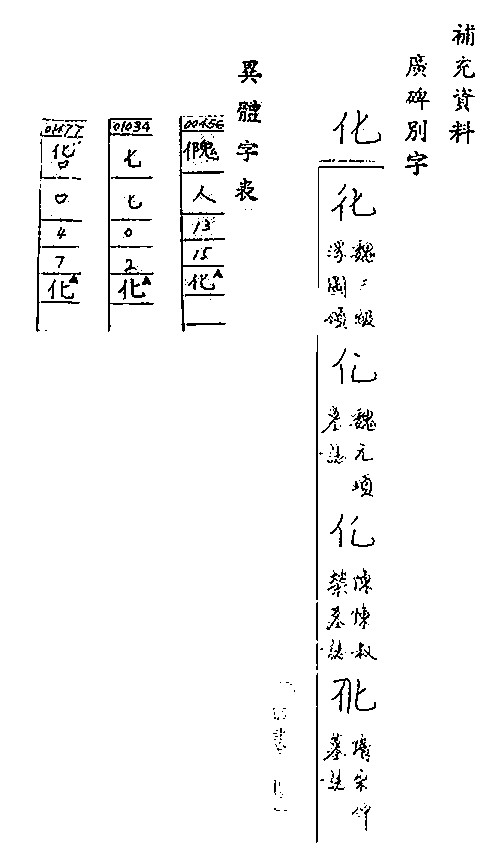 補充資料
廣碑別字
化
魏三級
浮圖頌
魏元頊
墓誌
陳叔
墓誌
隋宋仲
墓誌
異體字表
00456
傀
人
13
15
化▲
01034
𠤎
𠤎
0
2
化▲
01477
口
4
7
化▲